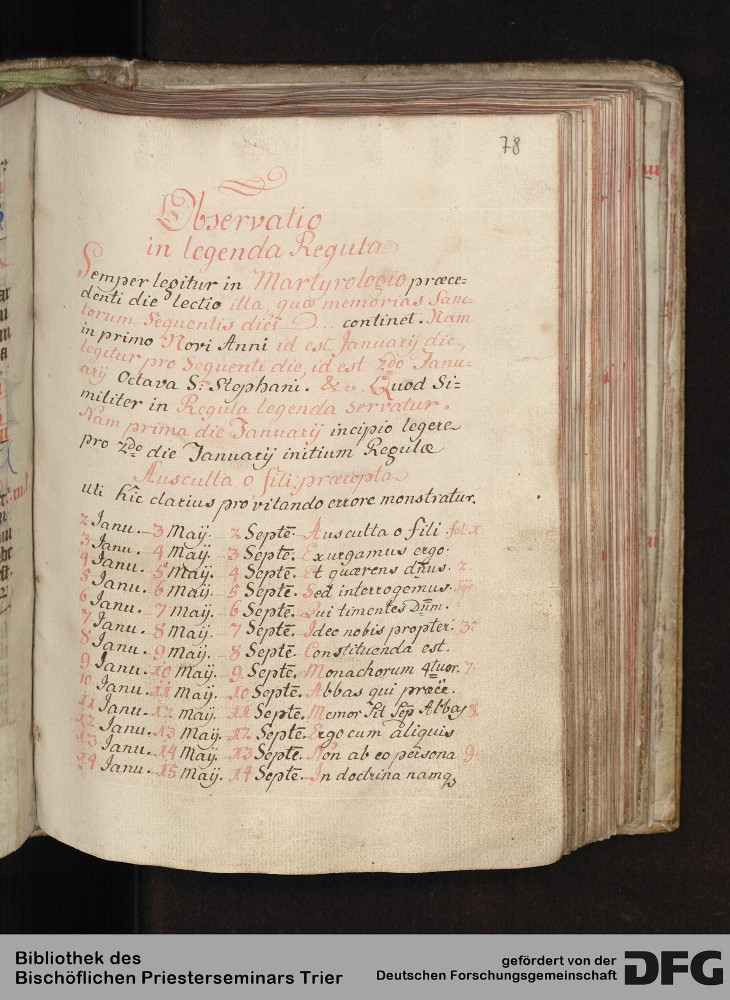 78
Observatio
in legenda Regula
Semper legitur in Martyrologio præce=
denti die lectio illa, quæ memorias Sanc=
torum Sequentis diei ... continet. Nam
in primo Novi Anni id est Januarij die,
legitur pro Sequenti die, id est 2do Janu=
arij Octava S: Stephani. &c. Quod Si=
militer in Regula legenda servatur.
Nam prima die Januarij incipio legere
pro 2do die Januarij initium Regulæ
Ausculta o fili præcepta
uti hîc clarius pro vitando errore monstratur.
2 Janu. 3 Maij. 2 Septē. Ausculta o fili fol.
3 Janu. 4 Maij. 3 Septē. Exurgamus ergo.
4 Janu. 5 Maij. 4 Septē. Et quærens dñus. 2
5 Janu. 6 Maij. 5 Septē. Sed interrogemus.
6 Janu. 7 Maij. 6 Septē. Qui timentes Dñm.
7 Janu. 8 Maij. 7 Septē. Ideo nobis propter. 3.
8 Janu. 9 Maij. 8 Septē. Constituenda est.
9 Janu. 10 Maij. 9 Septē. Monachorum 4tuor. 7.
10 Janu. 11 Maij. 10 Septē. Abbas qui præēē.
11 Janu. 12 Maij. 11 Septē. Memor sit Sep Abbas 8.
12 Janu. 13 Maij. 12 Septē. Ergo cum aliquis
13 Janu. 14 Maij. 13 Septē. Non ab eo persona 9
14 Janu. 15 Maij. 14 Septē. In doctrina namq3
Bibliothek des
Bischöflichen Priesterseminars Trier
gefördert von der
Deutschen Forschungsgemeinschaft
DFG